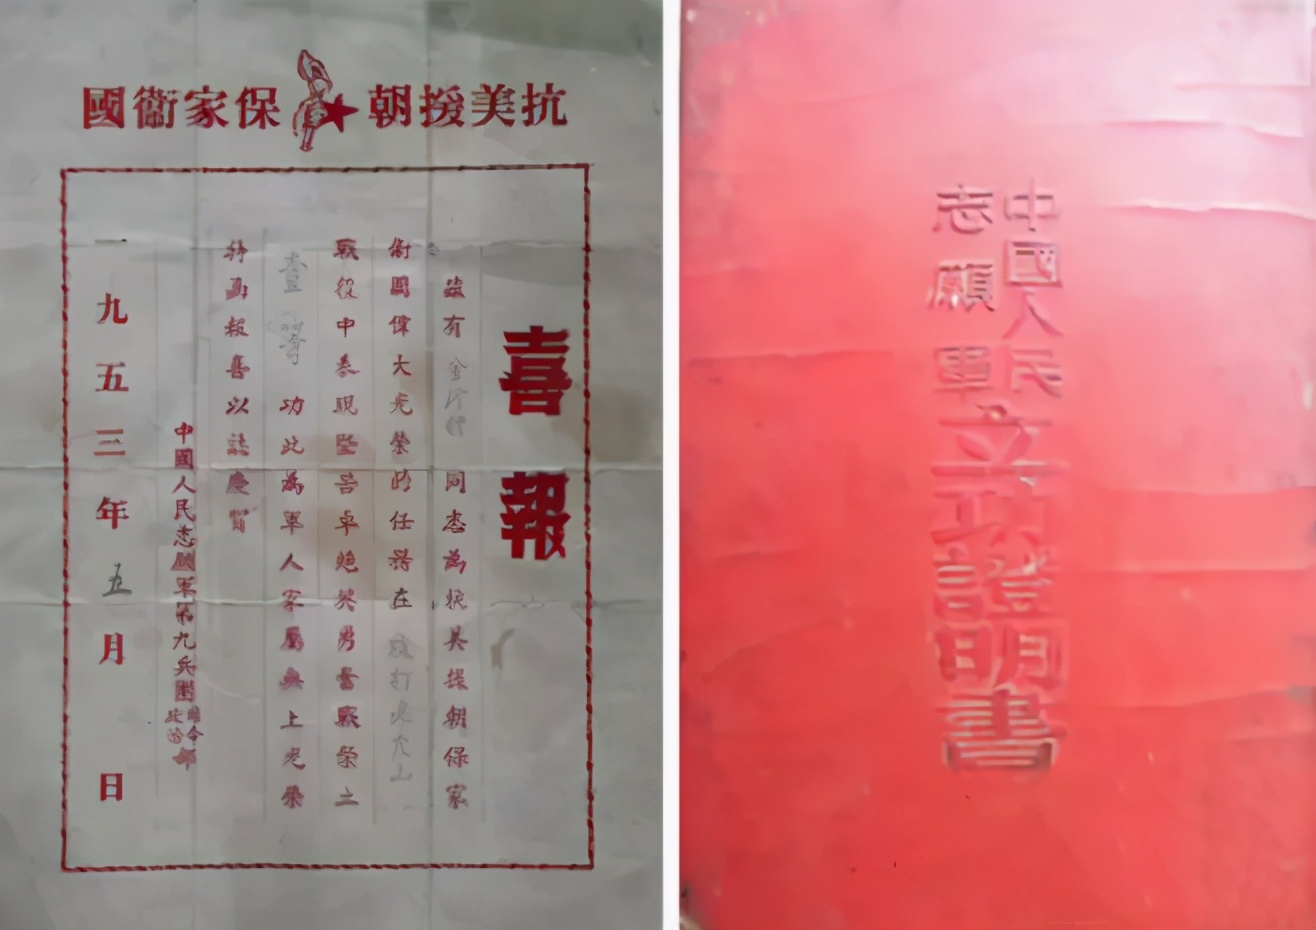 抗美援朝 保家衛國
喜報
茲有 同志為抗美援朝保家
衛國偉大光榮的任務在
戰役中表現堅苦卓絕英勇奮戰榮立
等功此為軍人家屬無上光榮
特函報喜以誌慶賀
中國人民志願軍第九兵團 政治部
一九五三年五月 日
中國人民
志願軍
立功證明書